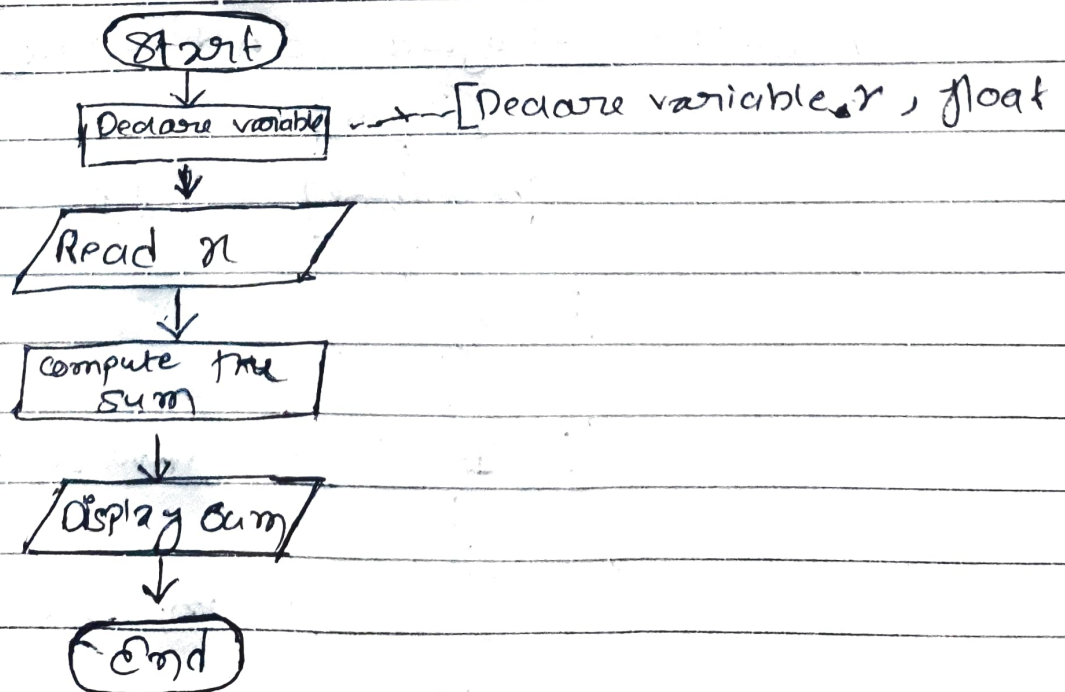 Start
Declare variable
[Declare variable r, float
Read r
compute the
sum
Display sum
End